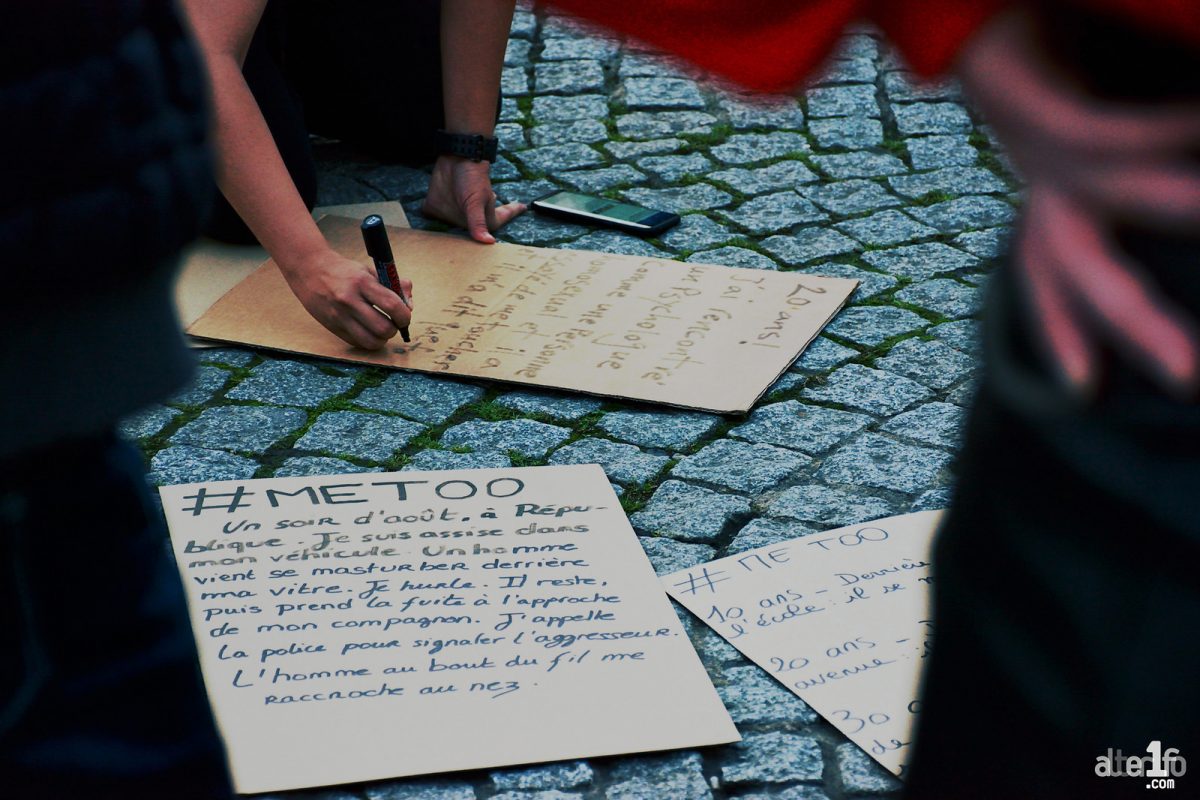 20 ans!
J'ai rencontré
un Psychologue
comme une Personne
#METOO
Un soir d'août, à Répu-
blique. Je suis assise dans
mon véhicule. Un homme
vient se masturber derrière
ma vitre. Je hurle. Il reste,
puis prend la fuite à l'approche
de mon compagnon. J'appelle
la police pour signaler l'aggresseur.
L'homme au bout du fil me
raccroche au nez.
# ME TOO
10 ans - Derrière
l'école : il se
20 ans -
avenue :
30
de
alter1fo
.com